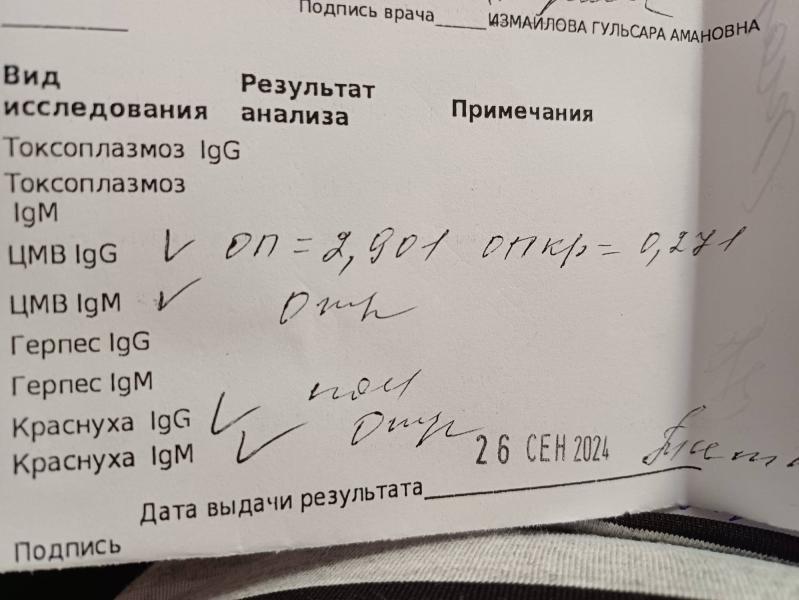 Подпись врача______ИЗМАЙЛОВА ГУЛЬСАРА АМАНОВНА
Вид исследования Результат анализа Примечания
Токсоплазмоз IgG
Токсоплазмоз
IgM
ЦМВ IgG ✓ ОП = 2,901 ОПкр = 0,271
ЦМВ IgM ✓ Отр
Герпес IgG
Герпес IgM
Краснуха IgG ✓ пол
Краснуха IgM ✓ Отр
26 СЕН 2024
Дата выдачи результата
Подпись